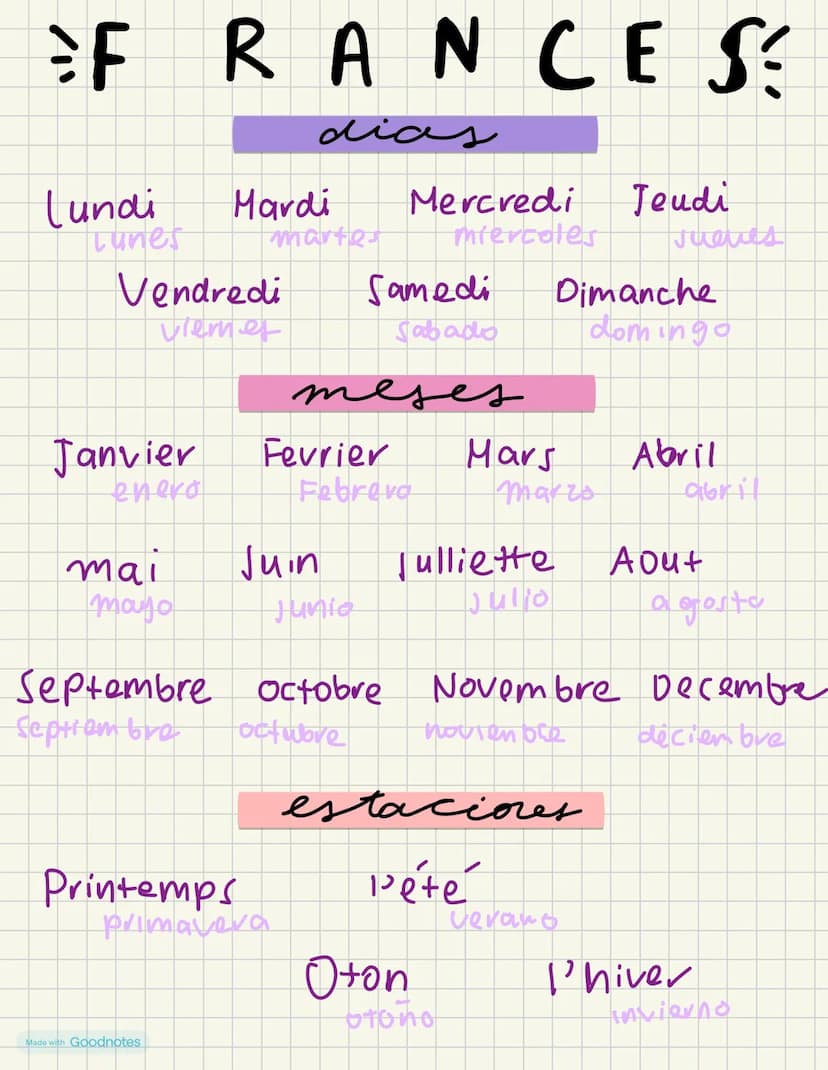 FRANCES
dias
Lundi Mardi Mercredi Jeudi
lunes martes miercoles jueves
Vendredi Samedi Dimanche
viernes sabado domingo
meses
Janvier Fevrier Mars Abril
enero Febrero marzo abril
mai Juin Julliette Aout
mayo junio julio agosto
Septembre octobre Novembre Decembre
septiembre octubre noviembre diciembre
estaciones
Printemps l'été
primavera verano
Oton l'hiver
otoño invierno
Made with Goodnotes